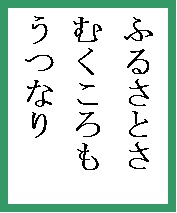 ふるさとさ
むくころも
うつなり